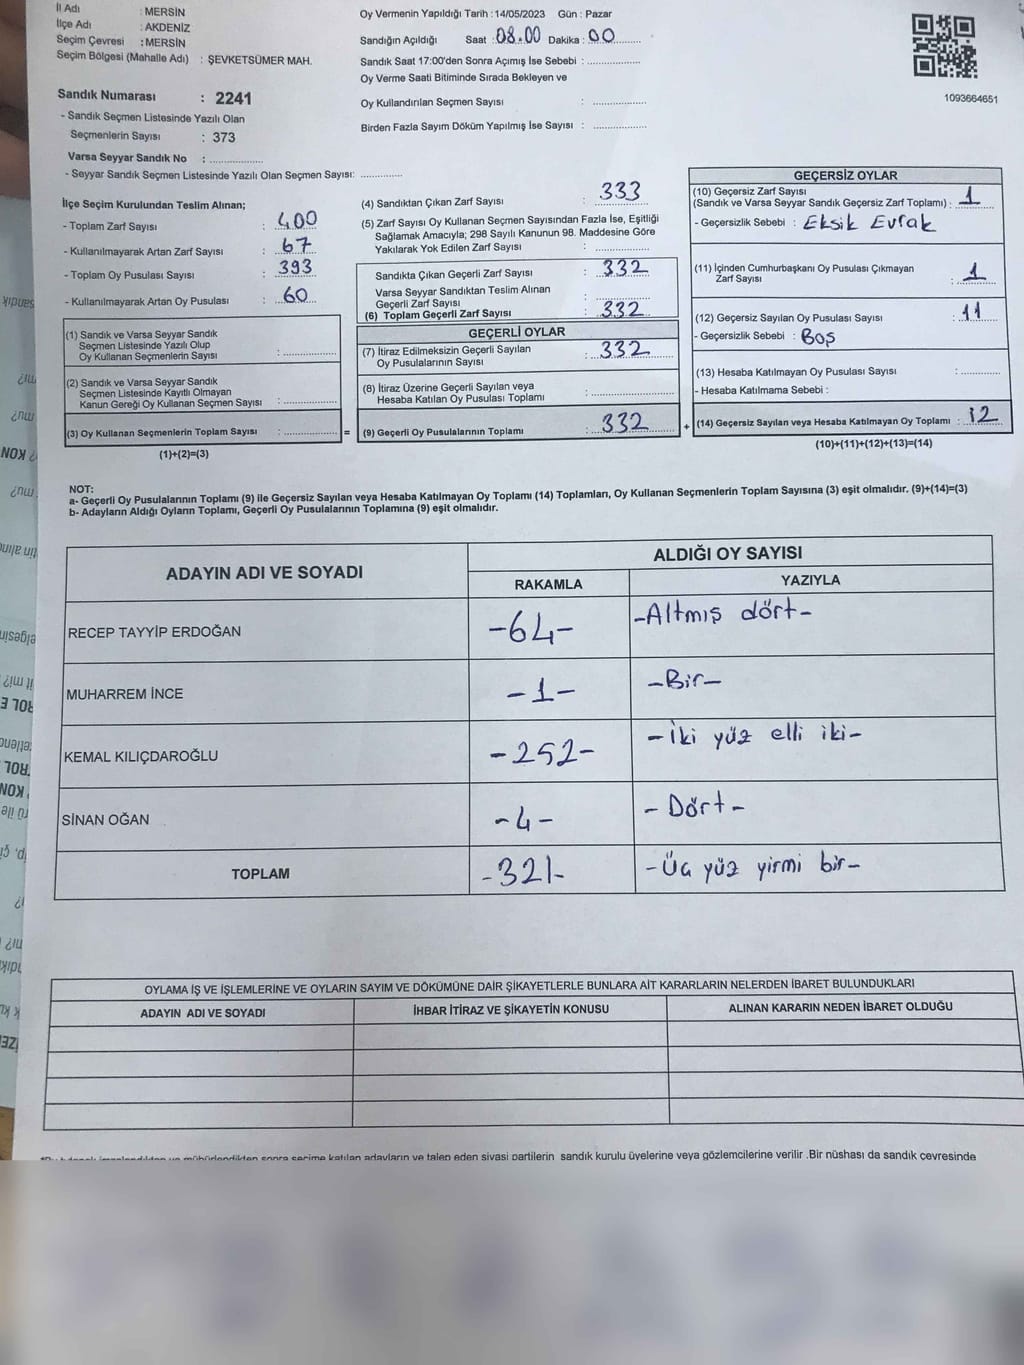 İl Adı : MERSİN
İlçe Adı : AKDENİZ
Seçim Çevresi : MERSİN
Seçim Bölgesi (Mahalle Adı) : ŞEVKETSÜMER MAH.
Sandık Numarası : 2241
- Sandık Seçmen Listesinde Yazılı Olan
Seçmenlerin Sayısı : 373
Varsa Seyyar Sandık No : ..................
- Seyyar Sandık Seçmen Listesinde Yazılı Olan Seçmen Sayısı: ..............
Oy Vermenin Yapıldığı Tarih : 14/05/2023 Gün : Pazar
Sandığın Açıldığı Saat : 08.00 Dakika : 00
Sandık Saat 17:00'den Sonra Açımış İse Sebebi : ..................
Oy Verme Saati Bitiminde Sırada Bekleyen ve
Oy Kullandırılan Seçmen Sayısı : ..................
Birden Fazla Sayım Döküm Yapılmış İse Sayısı : ..................
1093664651
İlçe Seçim Kurulundan Teslim Alınan;
- Toplam Zarf Sayısı : 400
- Kullanılmayarak Artan Zarf Sayısı : 67
- Toplam Oy Pusulası Sayısı : 393
- Kullanılmayarak Artan Oy Pusulası : 60
(1) Sandık ve Varsa Seyyar Sandık
Seçmen Listesinde Yazılı Olup
Oy Kullanan Seçmenlerin Sayısı : ..................
(2) Sandık ve Varsa Seyyar Sandık
Seçmen Listesinde Kayıtlı Olmayan
Kanun Gereği Oy Kullanan Seçmen Sayısı : ..................
(3) Oy Kullanan Seçmenlerin Toplam Sayısı : .................. =
(1)+(2)=(3)
(4) Sandıktan Çıkan Zarf Sayısı : 333
(5) Zarf Sayısı Oy Kullanan Seçmen Sayısından Fazla İse, Eşitliği
Sağlamak Amacıyla; 298 Sayılı Kanunun 98. Maddesine Göre
Yakılarak Yok Edilen Zarf Sayısı : ..................
Sandıkta Çıkan Geçerli Zarf Sayısı : 332
Varsa Seyyar Sandıktan Teslim Alınan
Geçerli Zarf Sayısı : ..................
(6) Toplam Geçerli Zarf Sayısı : 332
GEÇERLİ OYLAR
(7) İtiraz Edilmeksizin Geçerli Sayılan
Oy Pusulalarının Sayısı : 332
(8) İtiraz Üzerine Geçerli Sayılan veya
Hesaba Katılan Oy Pusulası Toplamı : ..................
(9) Geçerli Oy Pusulalarının Toplamı : 332 +
GEÇERSİZ OYLAR
(10) Geçersiz Zarf Sayısı
(Sandık ve Varsa Seyyar Sandık Geçersiz Zarf Toplamı) : 1
- Geçersizlik Sebebi : Eksik Evrak
(11) İçinden Cumhurbaşkanı Oy Pusulası Çıkmayan
Zarf Sayısı : 1
(12) Geçersiz Sayılan Oy Pusulası Sayısı : 11
- Geçersizlik Sebebi : Boş
(13) Hesaba Katılmayan Oy Pusulası Sayısı : ..............
- Hesaba Katılmama Sebebi :
(14) Geçersiz Sayılan veya Hesaba Katılmayan Oy Toplamı : 12
(10)+(11)+(12)+(13)=(14)
NOT:
a- Geçerli Oy Pusulalarının Toplamı (9) ile Geçersiz Sayılan veya Hesaba Katılmayan Oy Toplamı (14) Toplamları, Oy Kullanan Seçmenlerin Toplam Sayısına (3) eşit olmalıdır. (9)+(14)=(3)
b- Adayların Aldığı Oyların Toplamı, Geçerli Oy Pusulalarının Toplamına (9) eşit olmalıdır.
ADAYIN ADI VE SOYADI ALDIĞI OY SAYISI
RAKAMLA YAZIYLA
RECEP TAYYİP ERDOĞAN -64- -Altmış dört-
MUHARREM İNCE -1- -Bir-
KEMAL KILIÇDAROĞLU -252- -İki yüz elli iki-
SİNAN OĞAN -4- -Dört-
TOPLAM -321- -Üç yüz yirmi bir-
OYLAMA İŞ VE İŞLEMLERİNE VE OYLARIN SAYIM VE DÖKÜMÜNE DAİR ŞİKAYETLERLE BUNLARA AİT KARARLARIN NELERDEN İBARET BULUNDUKLARI
ADAYIN ADI VE SOYADI İHBAR İTİRAZ VE ŞİKAYETİN KONUSU ALINAN KARARIN NEDEN İBARET OLDUĞU
sonra seçime katılan adayların ve talep eden siyasi partilerin sandık kurulu üyelerine veya gözlemcilerine verilir .Bir nüshası da sandık çevresinde